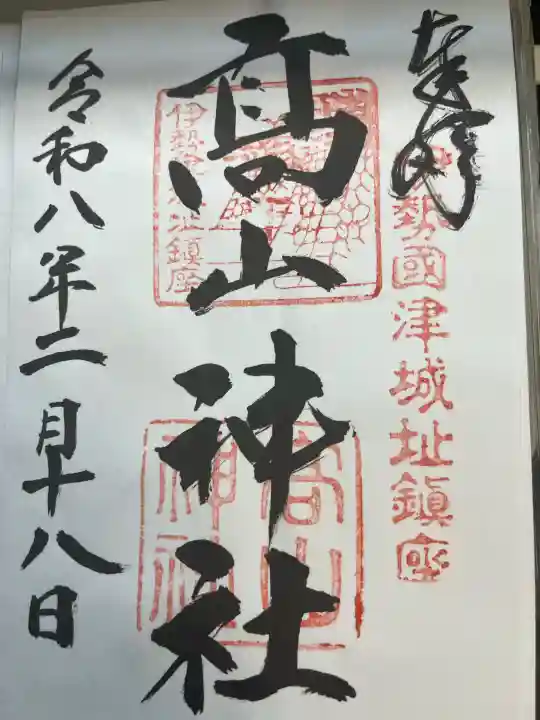 奉拝
伊勢國津城址鎮座
髙山神社
伊勢 城址鎮座
高山神社
令和八年二月十八日